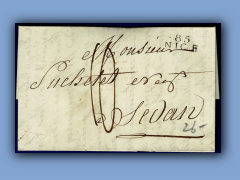 85
NICE
Monsieur
Puchelet
a Sedan
26-